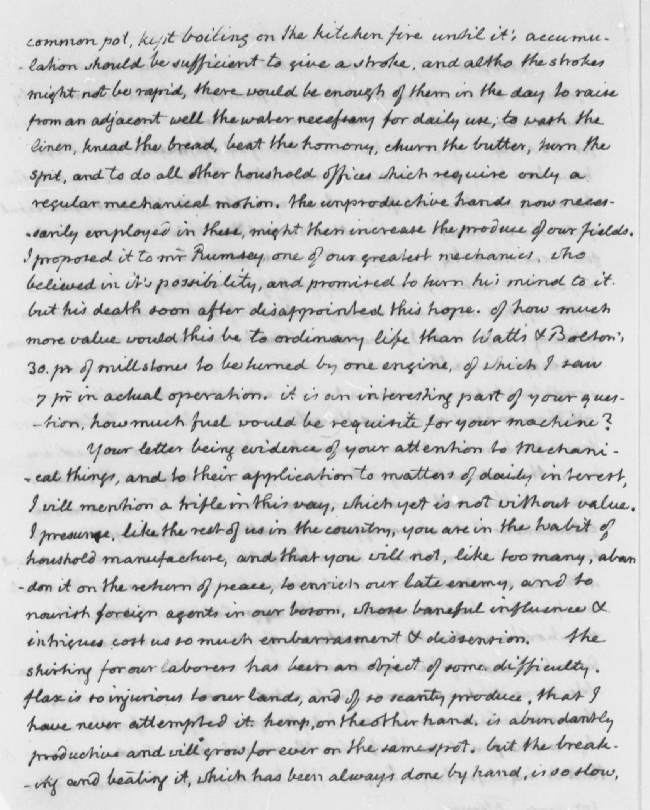 common pot, kept boiling on the kitchen fire until it's accumu-
-lation should be sufficient to give a stroke, and altho the strokes
might not be rapid, there would be enough of them in the day to raise
from an adjacent well the water necessary for daily use; to wash the
linen, knead the bread, beat the homony, churn the butter, turn the
spit, and to do all other houshold offices which require only a
regular mechanical motion. the unproductive hands now neces-
-sarily employed in these, might then increase the produce of our fields.
I proposed it to mr Rumsey, one of our greatest mechanics, who
believed in it's possibility, and promised to turn his mind to it.
but his death soon after disappointed this hope. of how much
more value would this be to ordinary life than Watts & Bolton's
30. pr of mill stones to be turned by one engine, of which I saw
7 pr in actual operation. it is an interesting part of your ques-
-tion, how much fuel would be requisite for your machine?
Your letter being evidence of your attention to mechani-
-cal things, and to their application to matters of daily interest,
I will mention a trifle in this way, which yet is not without value.
I presume, like the rest of us in the country, you are in the habit of
houshold manufacture, and that you will not, like too many, aban
-don it on the return of peace, to enrich our late enemy, and to
nourish foreign agents in our bosom, whose baneful influence &
intrigues cost us so much embarrasment & dissension. the
shirting for our laborers has been an object of some difficulty.
flax is so injurious to our lands, and of so scanty produce, that I
have never attempted it. hemp, on the other hand, is abundantly
productive and will grow for ever on the same spot. but the break-
-ing and beating it, which has been always done by hand, is so slow,